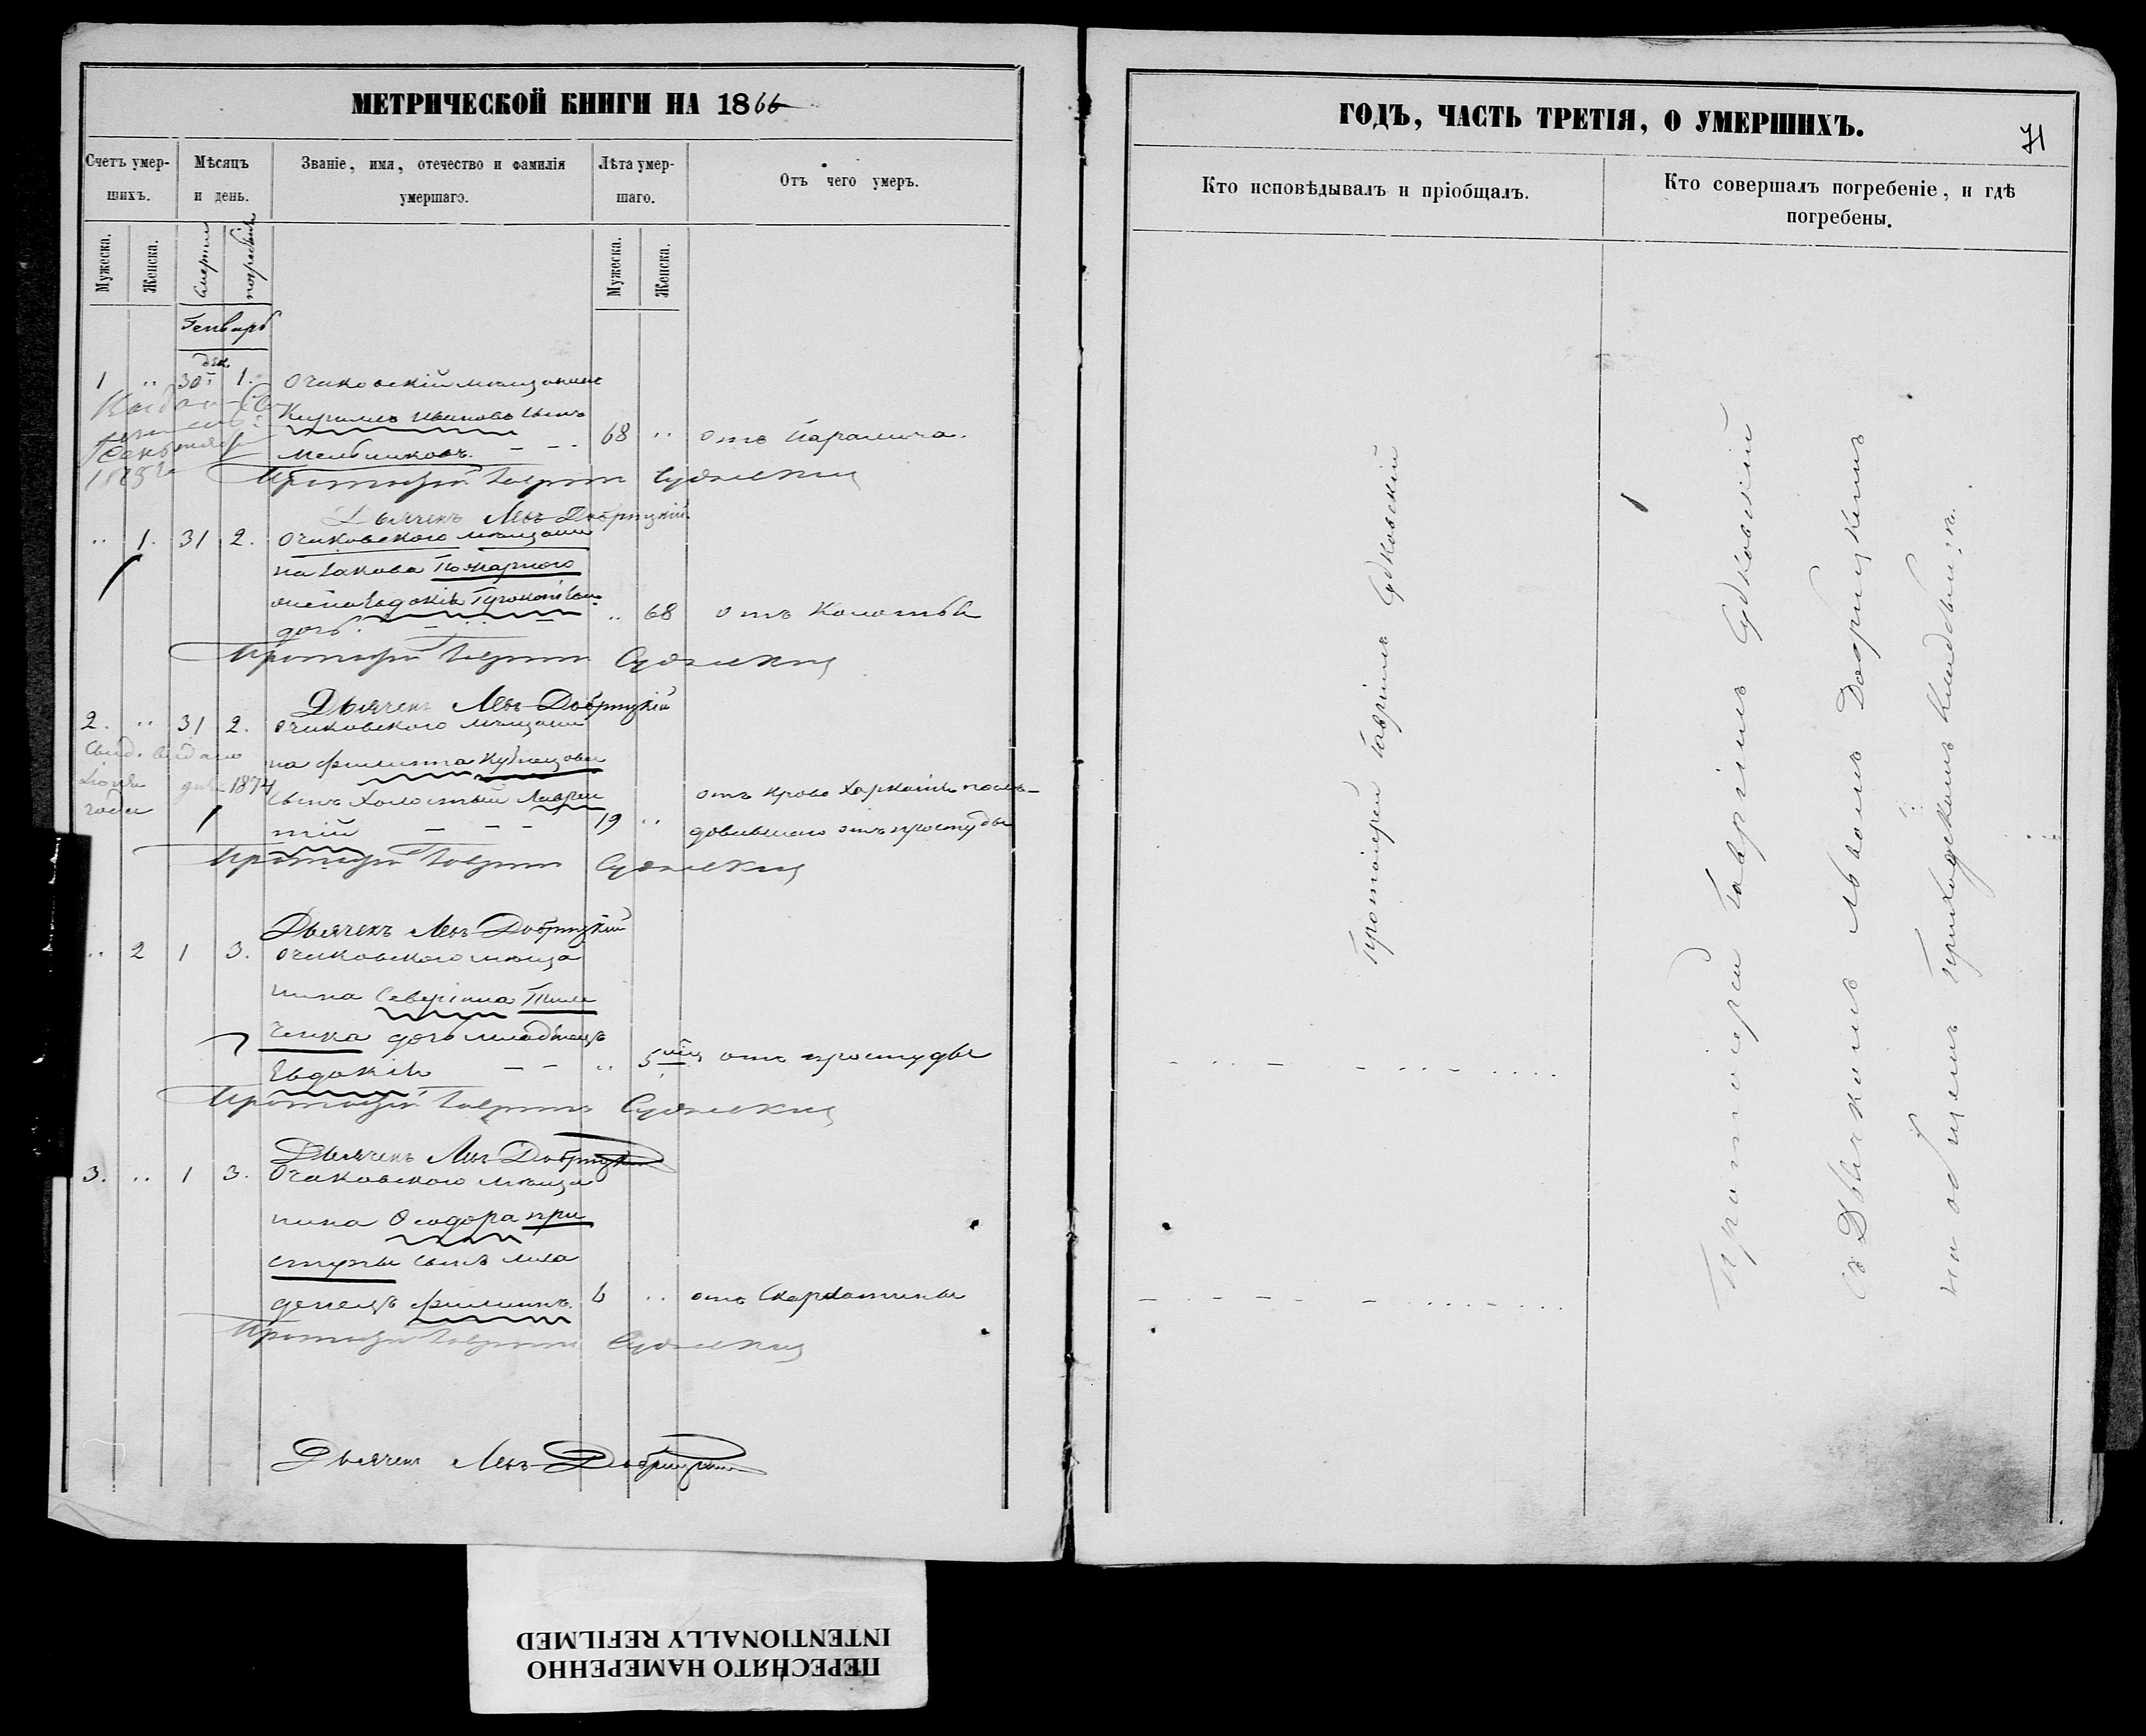 МЕТРИЧЕСКОЙ КНИГИ НА 1866
Счетъ умер-
шихъ.
Мѣсяцъ
и день.
Званіе, имя, отечество и фамилія
умершаго.
Лѣта умер-
шаго.
Отъ чего умеръ.
Мужеска.
Женска.
смерти
погребенія
Мужеска.
Женска.
Генварь
дек.
1 " 30 1. Очаковскій мѣщанинъ
Кириллъ Ивановъ сынъ
Мельниковъ. – – – 68 " отъ паралича.
Протоіерей Гавріилъ Судковскій
Дьячекъ Левъ Добрицкій
" 1. 31 2. Очаковскаго мѣщани
на Іакова Пожарного
жена Евдокія
дочь. – – – " 68 отъ колотья
Протоіерей Гавріилъ Судковскій
Дьячекъ Левъ Добрицкій
2. " 31 2. Очаковскаго мѣщани
на Филиппа Кузнецова
сынъ холостый Лаврен
тій – – – 19 "
отъ крово харканія послѣ-
довавшаго отъ простуды
Свид. выдано
1874
года
Протоіерей Гавріилъ Судковскій
Дьячекъ Левъ Добрицкій
" 2 1 3. Очаковскаго мѣща
нина Северіана Тим
ченка дочь младенецъ
Евдокія – – " 5 мѣц отъ простуды
Протоіерей Гавріилъ Судковскій
Дьячекъ Левъ Добрицкій
3. " 1 3. Очаковскаго мѣща
нина Ѳеодора При
ступы сынъ мла
денецъ Филиппъ. 6 " отъ скарлатины
Протоіерей Гавріилъ Судковскій
Дьячекъ Левъ Добрицкій
ГОДЪ, ЧАСТЬ ТРЕТІЯ, О УМЕРШИХЪ.
71
Кто исповѣдывалъ и пріобщалъ.
Кто совершалъ погребеніе, и гдѣ
погребены.
Протоіерей Гавріилъ Судковскій
Протоіерей Гавріилъ Судковскій
съ Дьячкомъ Львомъ Добрицкимъ
на общемъ приходскомъ кладбищѣ.
ПЕРЕСНЯТО НАМЕРЕННО
INTENTIONALLY REFILMED